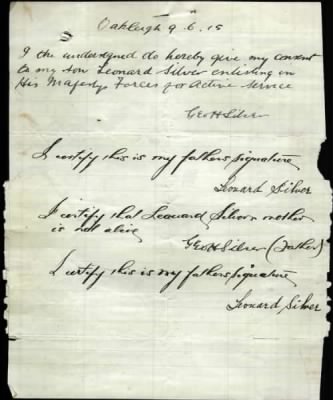 Oakleigh 9.6.15
I the undersigned do hereby give my consent
to my son Leonard Silver enlisting in
His Majestys Forces for Active Service
Geo H Silver
I certify this is my fathers signature
Leonard Silver
I certify that Leonard Silvers mother
is not alive
Geo H Silver (Father)
I certify this is my fathers signature
Leonard Silver